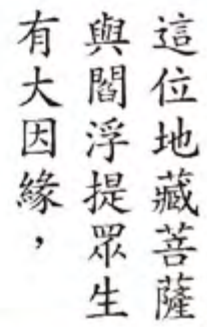 這位地藏菩薩
與閻浮提眾生
有大因緣，